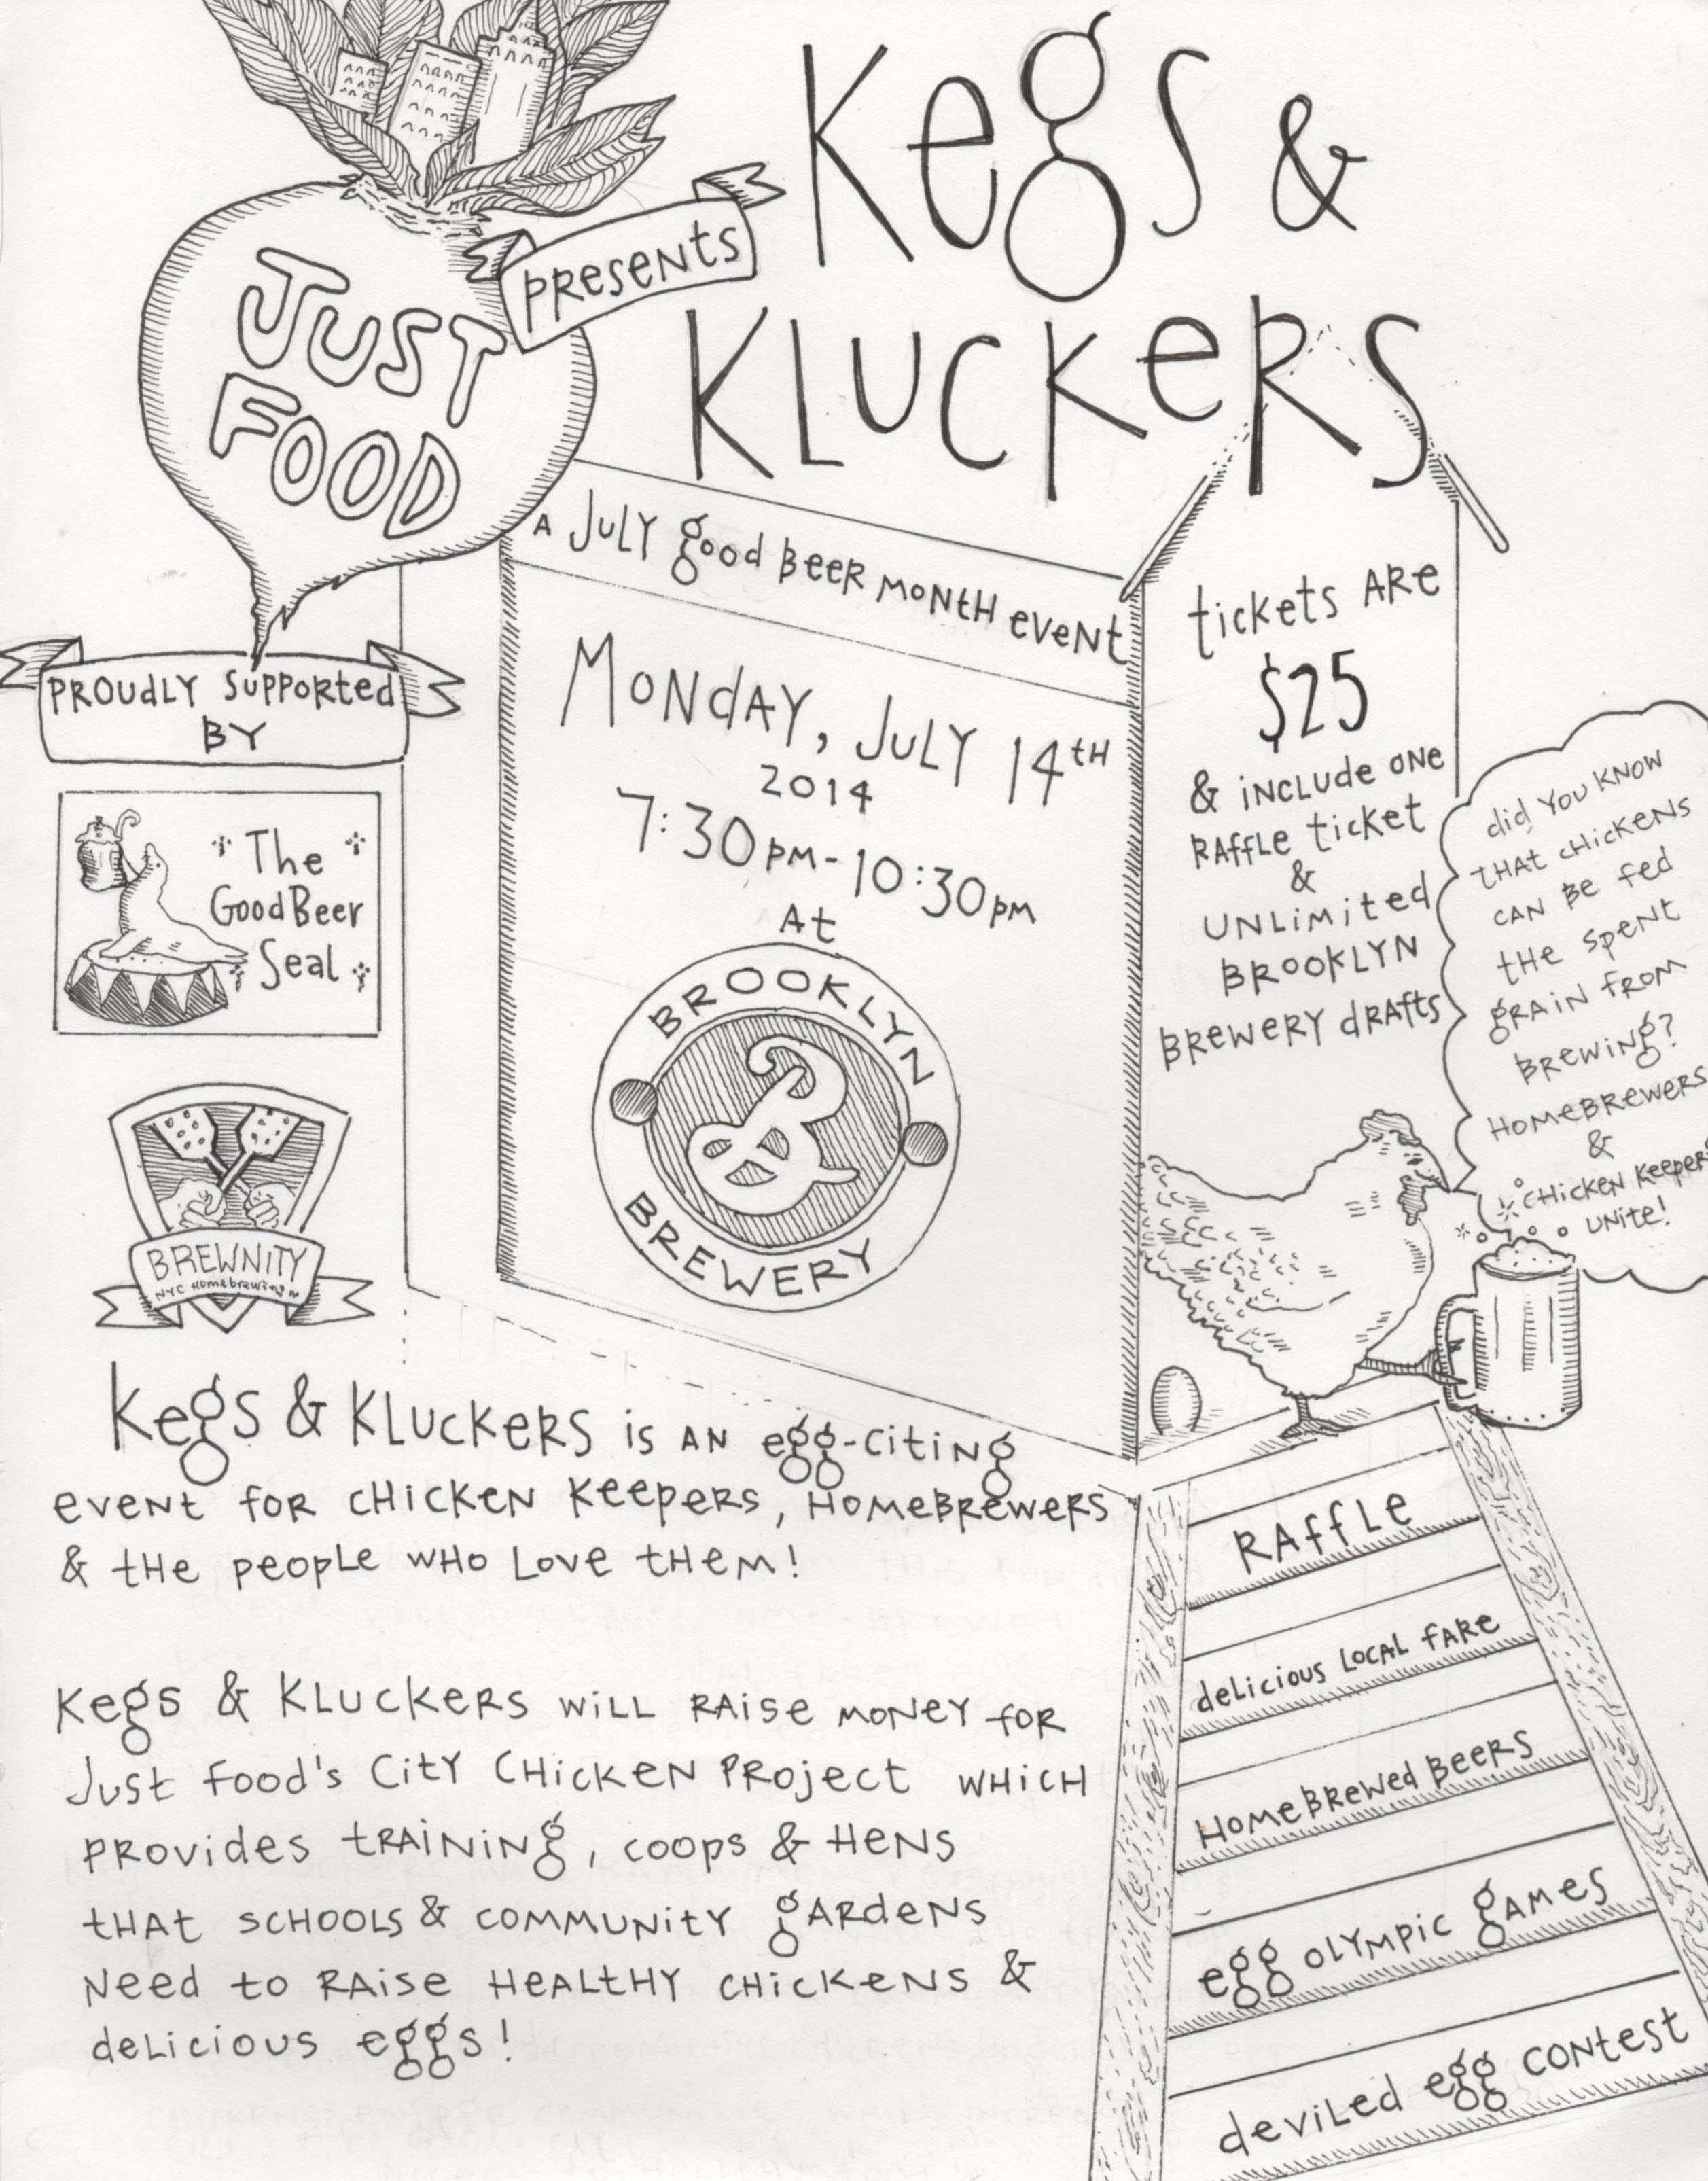 Kegs &
Kluckers
JUST
FOOD
presents
A July good beer month event
Monday, July 14th
2014
7:30pm-10:30pm
At
BROOKLYN
B
BREWERY
tickets are
$25
& include one
raffle ticket
&
unlimited
Brooklyn
Brewery drafts
did you know
that chickens
can be fed
the spent
grain from
brewing?
Homebrewers
&
chicken keepers
unite!
proudly supported
by
The
Good Beer
Seal
BREWNITY
NYC Homebrewing
Kegs & Kluckers is an egg-citing
event for chicken keepers, homebrewers
& the people who love them!
Kegs & Kluckers will raise money for
Just Food's City Chicken Project which
provides training, coops & hens
that schools & community gardens
need to raise healthy chickens &
delicious eggs!
Raffle
delicious local fare
Homebrewed beers
egg olympic games
deviled egg contest